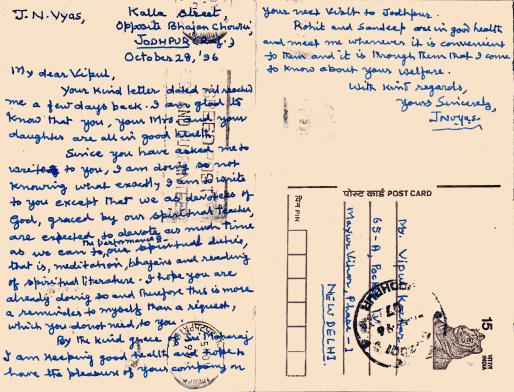 J. N. Vyas,
Kalla Street,
Opposite Bhajan Chowki,
JODHPUR (Raj.)
October 28, '96
My dear Vipul,
Your kind letter dated nil reached
me a few days back. I am glad to
know that you, your Mrs. and your
daughter are all in good health.
Since you have asked me to
write to you, I am doing so not
knowing what exactly I am to write
to you except that we as devotees of
God, graced by our spiritual teacher,
are expected to devote as much time
as we can to the performance of our spiritual duties,
that is, meditation, bhajans and reading
of spiritual literature. I hope you are
already doing so and therefore this is more
a reminder to myself than a request,
which you do not need, to you.
By the kind grace of Maharaj
I am keeping good health and hope to
have the pleasure of your company on
your next visit to Jodhpur.
Rohit and Sandeep are in good health
and meet me whenever it is convenient
to them and it is through them that I come
to know about your welfare.
With kind regards,
Yours Sincerely,
JNVyas.
पोस्ट कार्ड POST CARD
पिन PIN
Vipul
65-A, Pocket
Mayur Vihar, Phase-1
NEW DELHI
JODHPUR
15
भारत INDIA